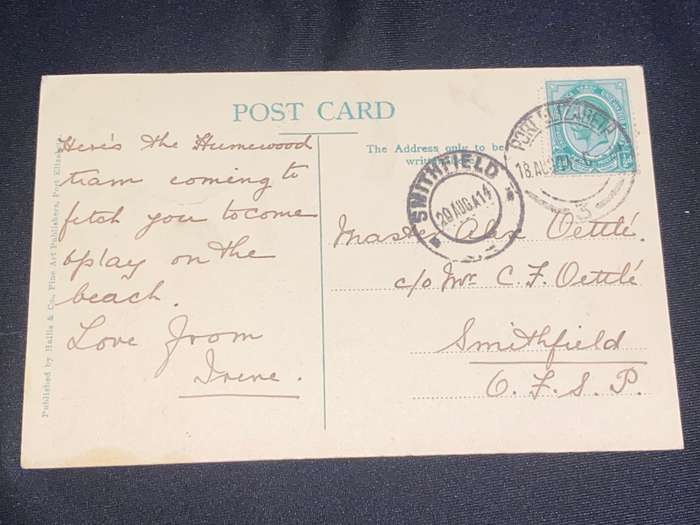 POST CARD
Here's the Humewood
tram coming to
fetch you to come
& play on the
beach.
Love from
Irene.
The Address only to be
Master Alex Oettlé.
c/o Mr. C. F. Oettlé
Smithfield
O. F. S. P.
SMITHFIELD
20 AUG 14
PORT ELIZABETH
18 AUG
3
Published by Hallis & Co., Fine Art Publishers, Port Elizabeth